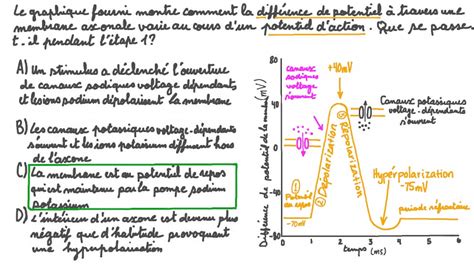 Le graphique fourni montre comment la différence de potentiel à travers une
membrane axonale varie au cours d'un potentiel d'action. Que se passe
t-il pendant l'étape 1?
A) Un stimulus a déclenché l'ouverture
de canaux sodiques voltage dépendants
et les ions sodium dépolarisent la membrane
B) Les canaux potassiques voltage-dépendants
s'ouvrent et les ions potassium diffusent hors
de l'axone
C) La membrane est au potentiel de repos
qui est maintenue par la pompe sodium
potassium
D) L'intérieur d'un axone est devenu plus
négatif que d'habitude provoquant
une hyperpolarisation
Différence de potentiel de la membrane (mV)
80
40
0
-40
-80
canaux
sodiques
voltage
s'ouvrent
+40mV
Canaux potassiques
voltage-dépendants
s'ouvrent
② Dépolarization
③ Repolarization
① Potentiel
au
repos
-70mV
Hyperpolarization
-75mV
période réfractaire
0 1 2 3 4 5 6
temps (ms)